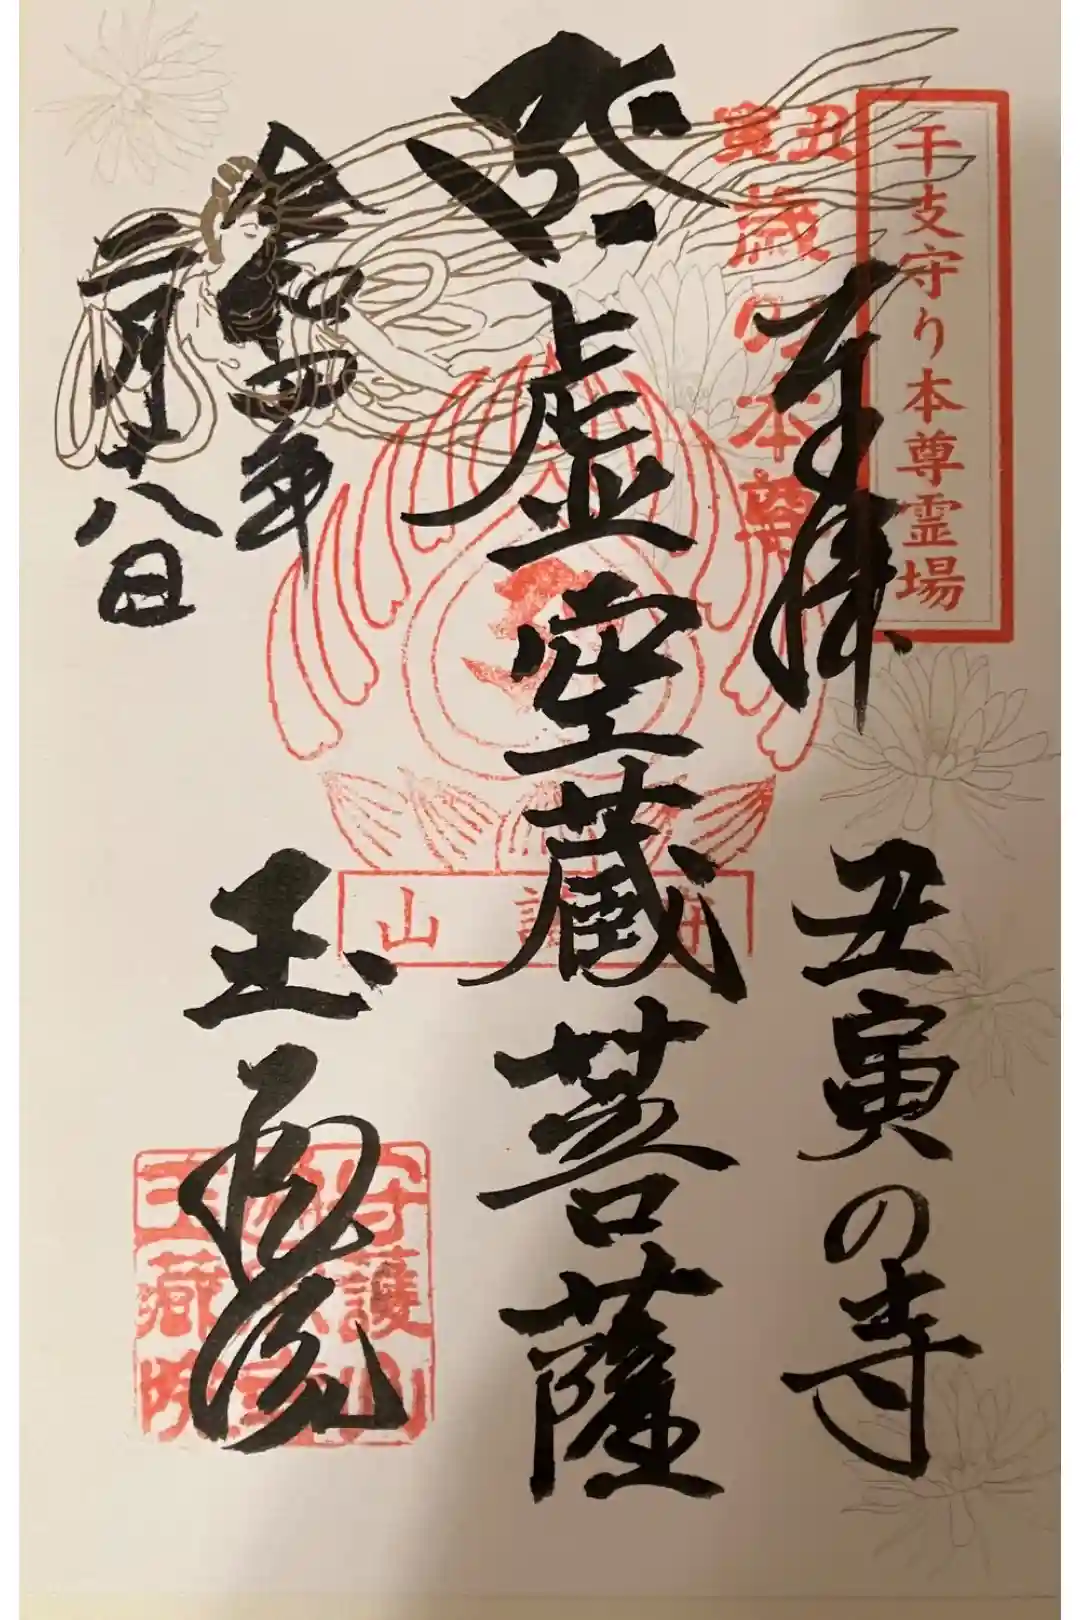 干支守り本尊霊場
丑寅
歳の本尊
奉拝
丑寅の寺
虚空蔵菩薩
守護山
令和四年
月十八日
玉蔵院
守護山
玉蔵院